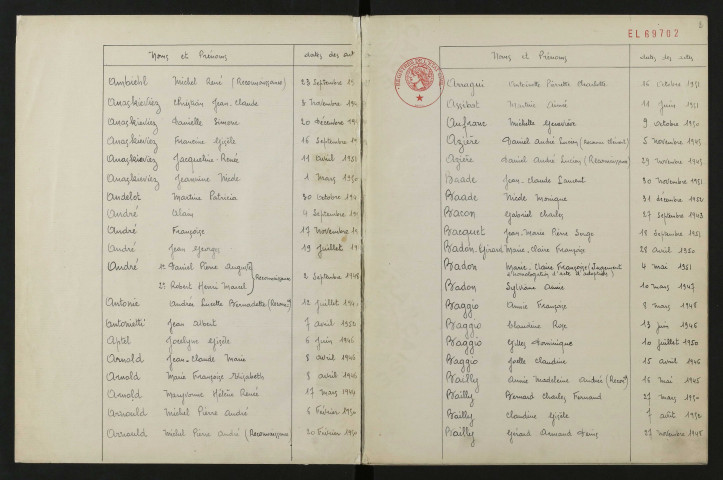 Noms et Prénoms dates des act
Ambiehl Michel René (Reconnaissance) 23 Septembre 19
Anaskieviez Christian Jean-Claude 3 Novembre 194
Anaskieviez Danielle Simone 20 décembre 194
Anaskieviez Francine Gisèle 16 Septembre 1
Anaskieviez Jacqueline-Renée 11 avril 1951
Anaskieviez Jeannine Nicole 1 Mars 1950
Andelot Martine Patricia 30 octobre 19
André Alain 4 Septembre 19
André Françoise 17 Novembre 19
André Jean Georges 19 Juillet 19
André 1° Daniel Pierre Auguste
2° Robert Henri Marcel (Reconnaissance 2 Septembre 1946
Antoine Andrée Lucette Bernadette (Recon.) 12 Juillet 194
Antonietti Jean Albert 7 avril 1952
Aptel Jocelyne Gisèle 6 Juin 1946
Arnold Jean-Claude Marie 8 avril 1946
Arnold Marie Françoise Elizabeth 8 avril 1946
Arnold Maryvonne Hélène Renée 17 Mars 1949
Arnould Michel Pierre André 6 Février 1950
Arnould Michel Pierre André (Reconnaissance 20 Février 1950
EL 69702
Noms et Prénoms dates des actes
Arragui Antoinette Pierrette Charlotte 16 octobre 1951
Assibat Martine Aimée 11 Juin 1951
Aufranc Michelle Geneviève 9 octobre 1950
Azière Daniel André Lucien 5 Novembre 1945
Azière Daniel André Lucien (Reconnaissance 29 Novembre 1945
Baade Jean-Claude Laurent 30 Novembre 1951
Baade Nicole Monique 31 décembre 1952
Bacon Gabriel Charles 27 Septembre 1948
Bacquet Jean-Marie Pierre Serge 18 Septembre 1951
Badon Gérard Marie-Claire Françoise 28 Avril 1950
Badon Marie-Claire Françoise (Jugement
d'homologation d'acte d'adoption) 4 Mai 1951
Badon Sylviane Annie 10 Mars 1947
Baggio Annie Françoise 8 Mars 1948
Baggio Claudine Rose 13 Juin 1946
Baggio Gilles Dominique 10 Juillet 1950
Baggio Joëlle Claudine 15 avril 1946
Bailly Annie Madeleine Andrée (Recon.) 16 Mai 1945
Bailly Bernard Charles Fernand 27 Mars 1950
Bailly Claudine Gisèle 1 août 1950
Bailly Gérard Armand Denis 27 Novembre 1945